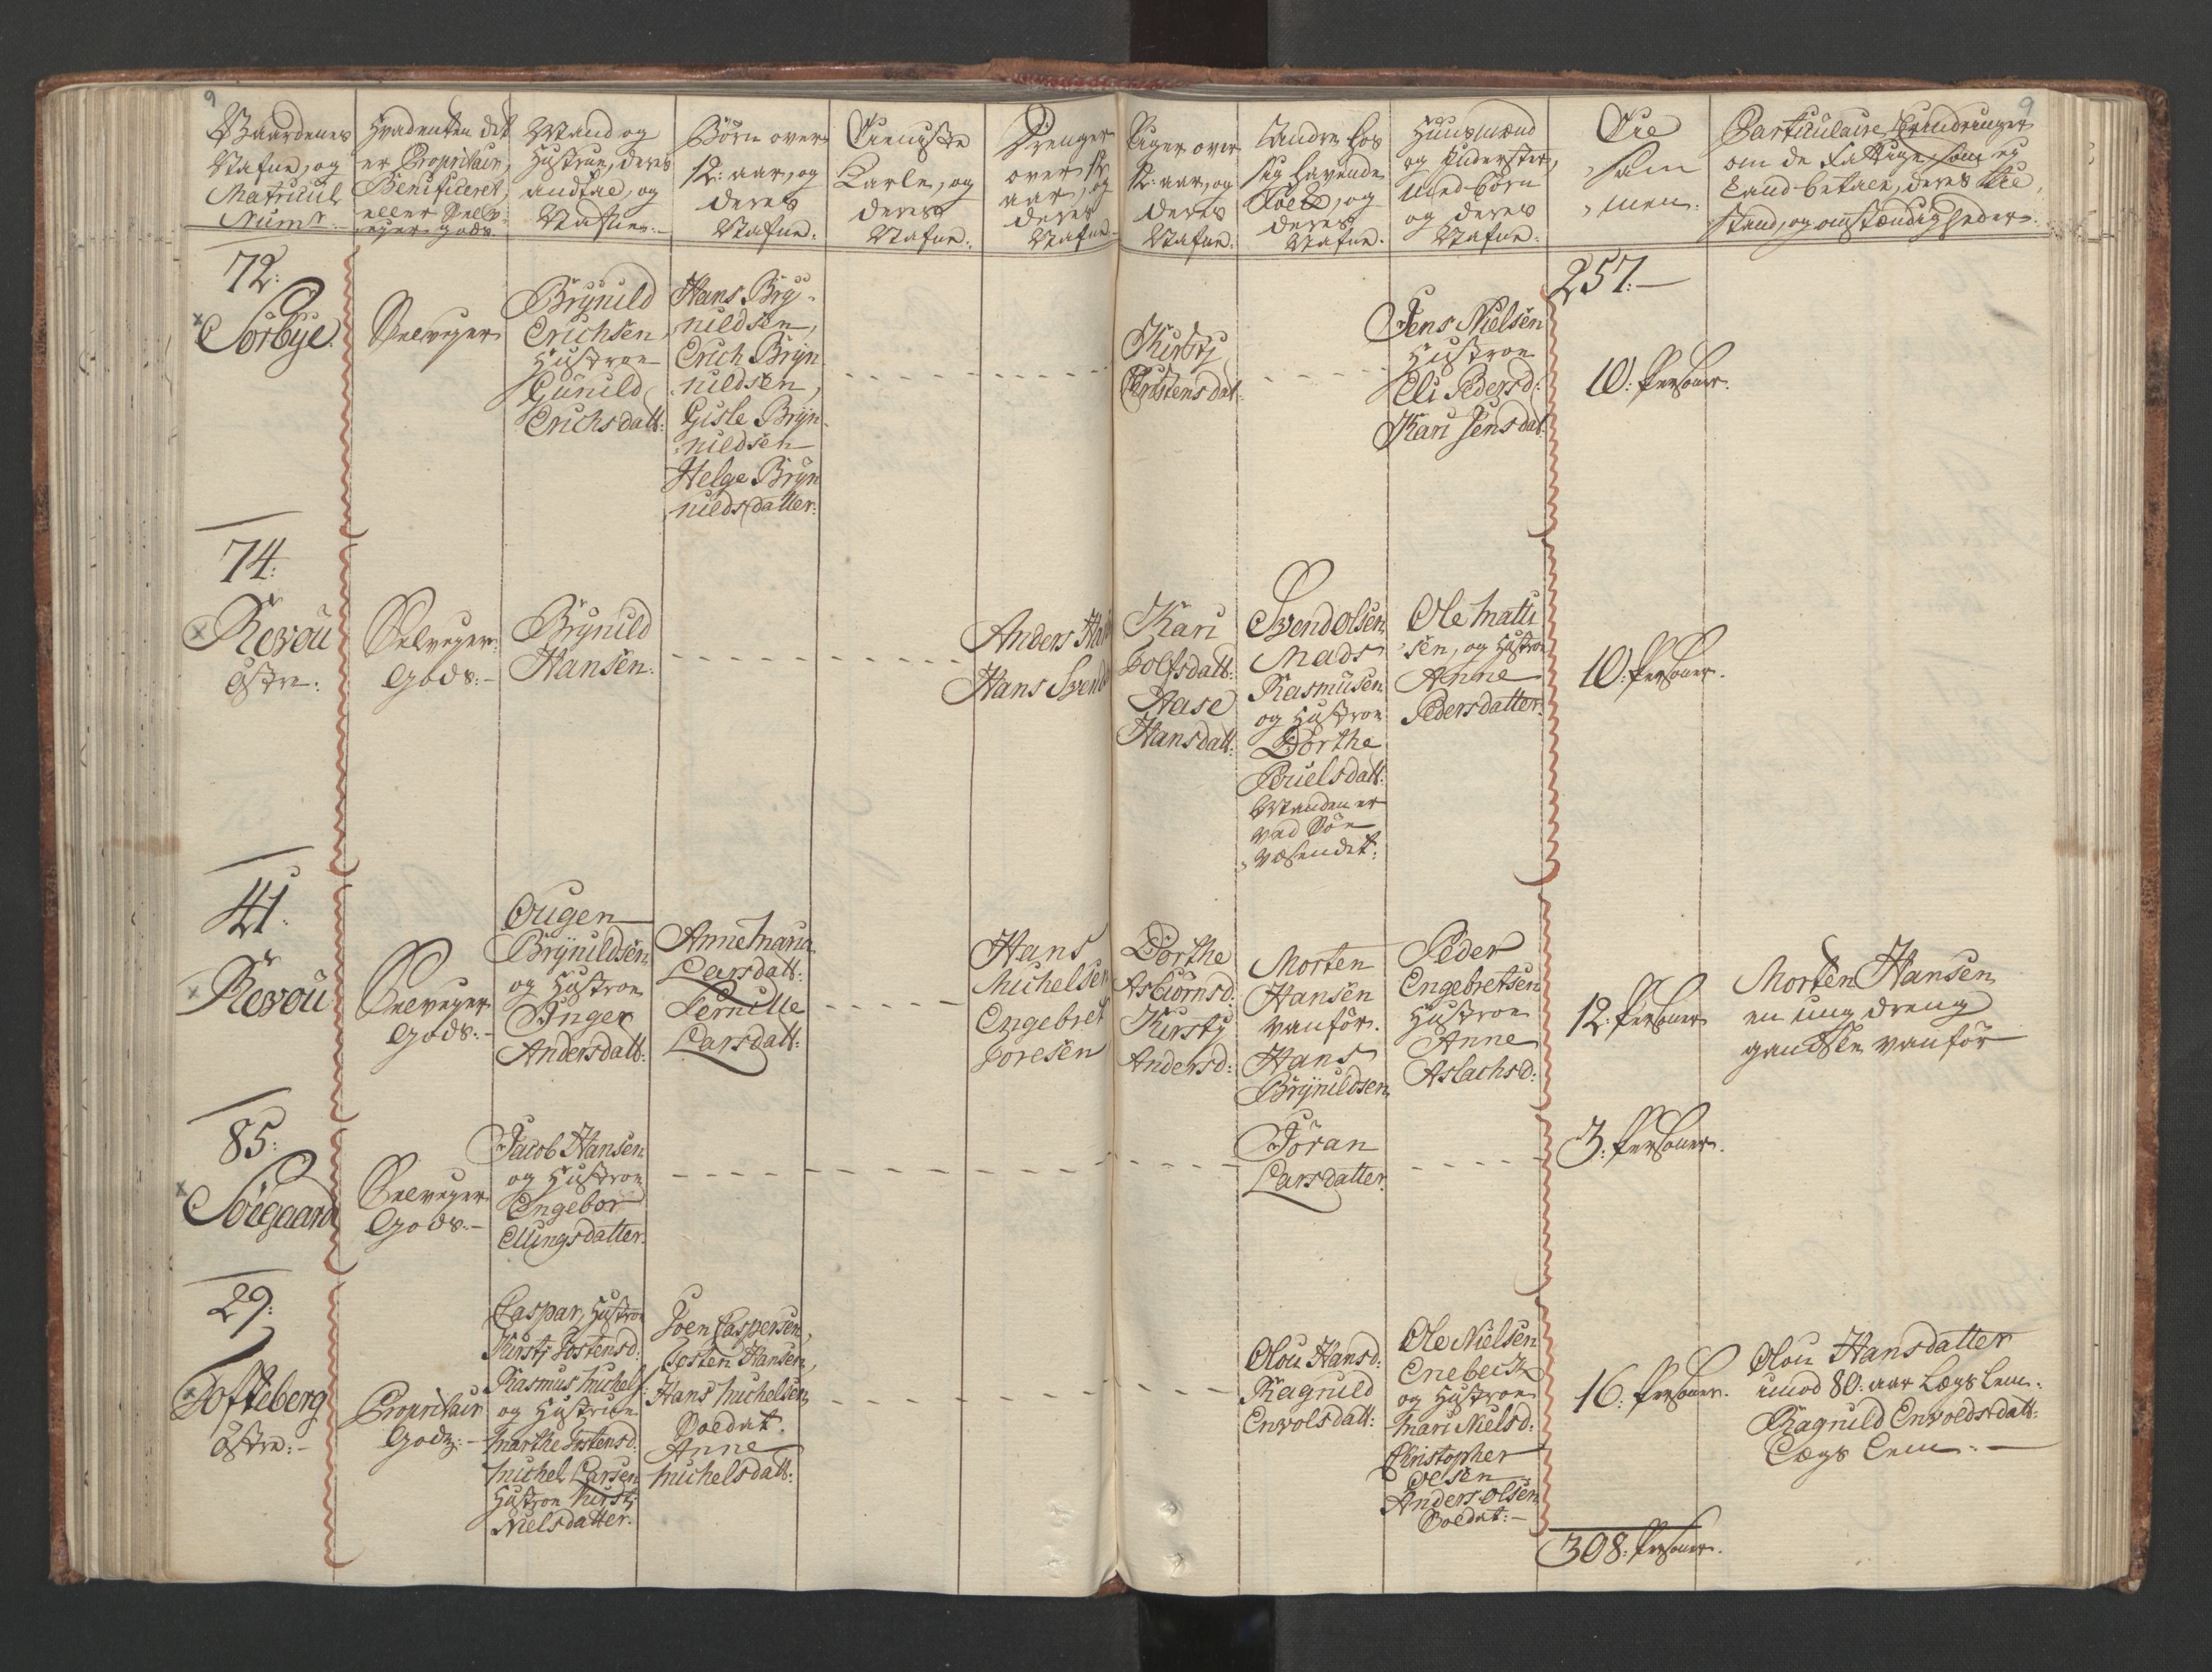 9
9
Gaardenes
Nafne, og
Matricul
Num:
Hvadenten det
er Propritair,
Benificeret,
eller Selv-
eyer gods.
Mand og
Hustrue, deres
andtal, og
Nafne.
Börn over
12: aar, og
deres
Nafne.
Tieniste
Karle, og
deres
Nafne.
Drenger
over 12
aar, og
deres
Nafne
Piger over
12: aar, og
deres
Nafne.
Andre hos
sig havende
Folk, og
deres
Nafne.
Huusmænd
og Inderster,
med börn
og deres
Nafne.
Til
sam
men.
Particulaire Erindringer
om de fattige, som ey
kand betale, deres til
stand, og omstændigheder.
257.
72:
Sörbÿe
Selveyer
Brÿnild
Erichsen
Hustroe
Gunild
Erichsdatt:
Hans Brÿ-
nildsen,
Erich Brÿn
nildsen,
Gisle Brÿn
nildsen
Helge Brÿn
nildsdatter.
Kirstj
Christensdat.
Jens Nielsen
Hustroe
Eli Pedersd:
Kari Jensdat.
10: Personer.
74:
Revou
östre:
Selveyer
Gods.
Brÿnild
Hansen.
Anders Han
Hans Svend
Kari
Rolfsdatt:
Aase
Hansdatt:
Svend Olsen
Mads
Rasmusen
og Hustroe
Dorthe
Poulsdatt:
Manden er
ved Söe
væsendet.
Ole Matti
sen, og Hustroe
Anne
Pedersdatter.
10: Personer.
41:
Revou
Selveyer
Gods.
Ougen
Brÿnildsen
og Hustroe
Inger
Andersdatt:
Anne Maria
Larsdatt:
Pernille
Larsdatt:
Hans
Michelsen
Engebret
Joresen
Dorthe
Asbiörnsd:
Kirstj
Andersd:
Morten
Hansen
vanför.
Hans
Brÿnildsen
Peder
Engebretsen
Hustroe
Anne
Aslachsd:
12: Personer
Morten Hansen
en ung dreng
gandske vanför
85:
Söegaard
Selveyer
Gods.
Jacob Hansen
og Hustroe
Engebor
Ellingsdatter.
Jöran
Larsdatter.
3: Personer.
29:
Tofteberg
östre:
Propritair
Gods:
Caspar, Hustroe
Kirstj Tostensd:
Rasmus Michels:
og Hustrue
Marthe Tostensd:
Michel Larsen
Hustroe Kirstj
Nielsdatter.
Joen Caspersen,
Tosten Hansen,
Hans Michelsen
Soldat.
Anne
Michelsdatt:
Olou Hansd:
Ragnild
Envolsdatt:
Ole Nielsen
Enebech
og Hustroe
Mari Nielsd:
Christopher
Olsen
Anders Olsen
Soldat:
16: Personer.
Olou Hansdatter
imod 80: aar Lægs lem.
Ragnild Envoldsdatt:
Lægs lem.
308: Personer.